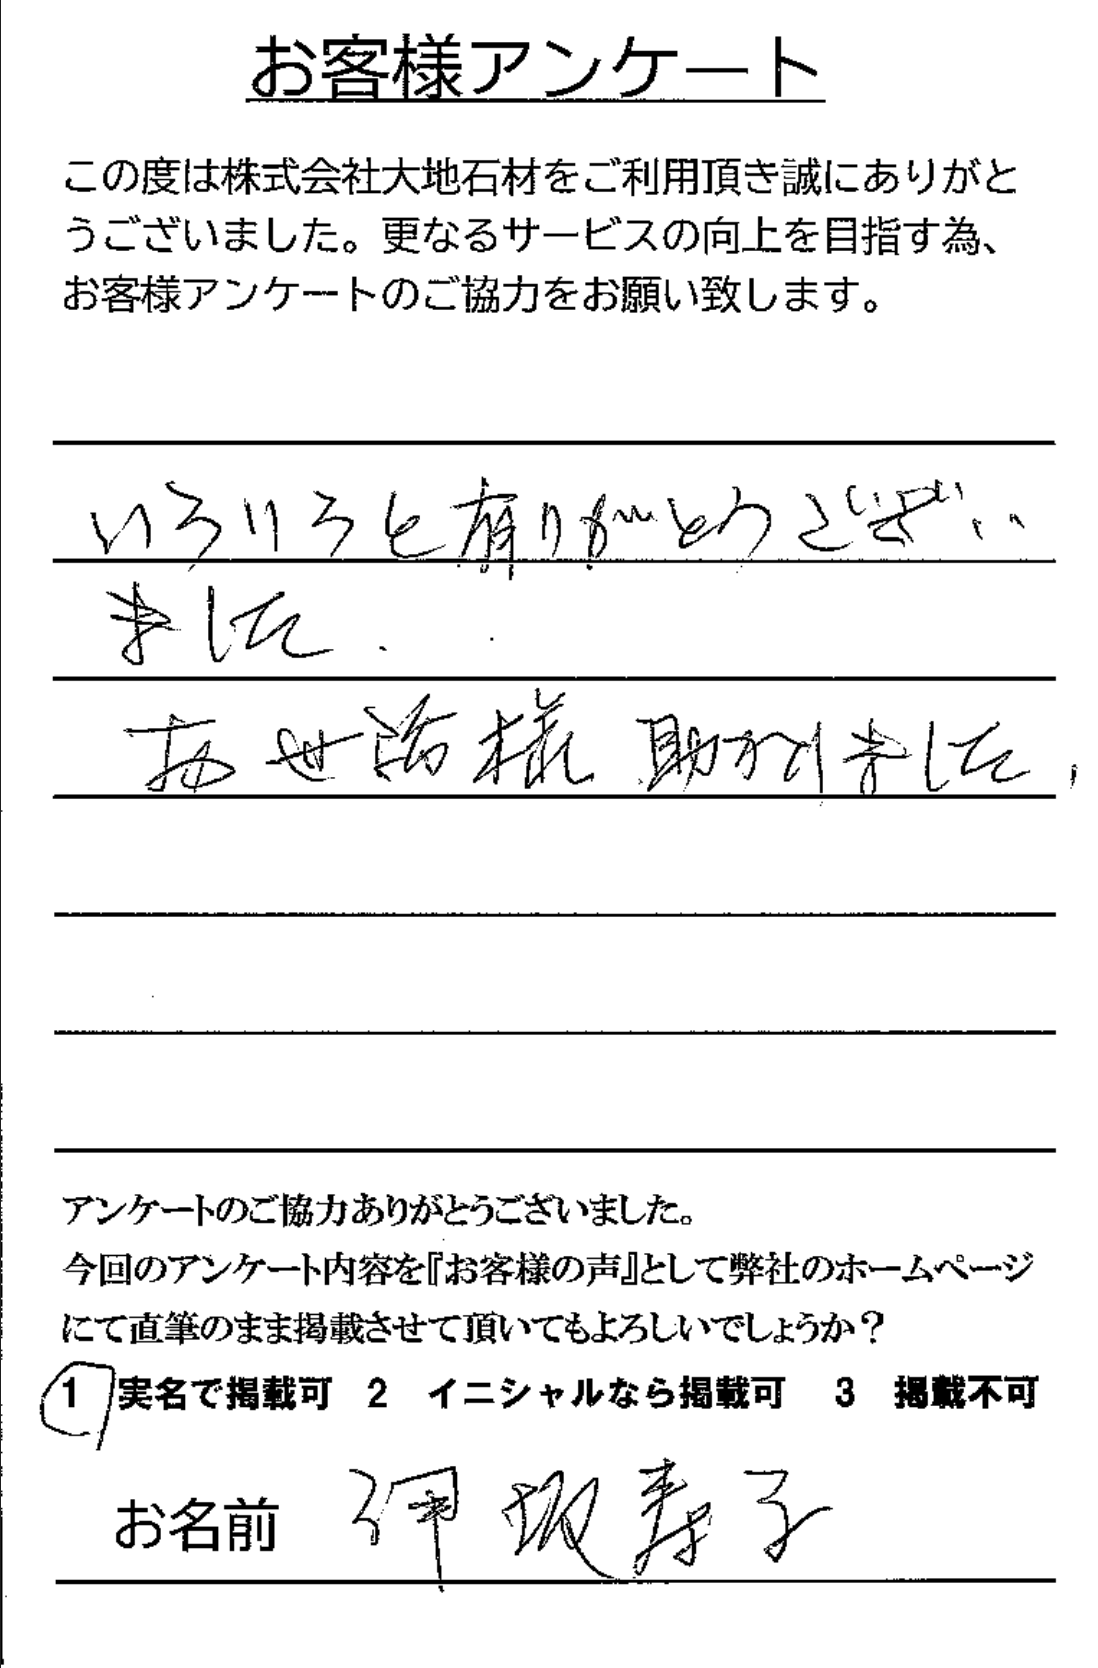 お客様アンケート
この度は株式会社大地石材をご利用頂き誠にありがと
うございました。更なるサービスの向上を目指す為、
お客様アンケートのご協力をお願い致します。
いろいろと有りがとうござい
ました.
お世話様 助かりました,
アンケートのご協力ありがとうございました。
今回のアンケート内容を『お客様の声』として弊社のホームページ
にて直筆のまま掲載させて頂いてもよろしいでしょうか?
1 実名で掲載可 2 イニシャルなら掲載可 3 掲載不可
お名前 伊坂寿子